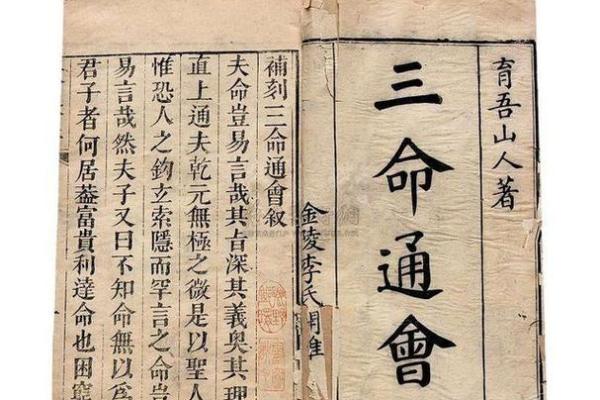 育吾山人著
三命通會
金陵李氏
補刻三命通會叙
夫命豈易言哉其旨深其義奧其理
直上通夫乾元無極之微是以聖人
惟恐人之鈎玄索隱而罕言之命豈
易言哉然夫子又曰不知命無以爲
君子者何居葢富貴利達命也困窮